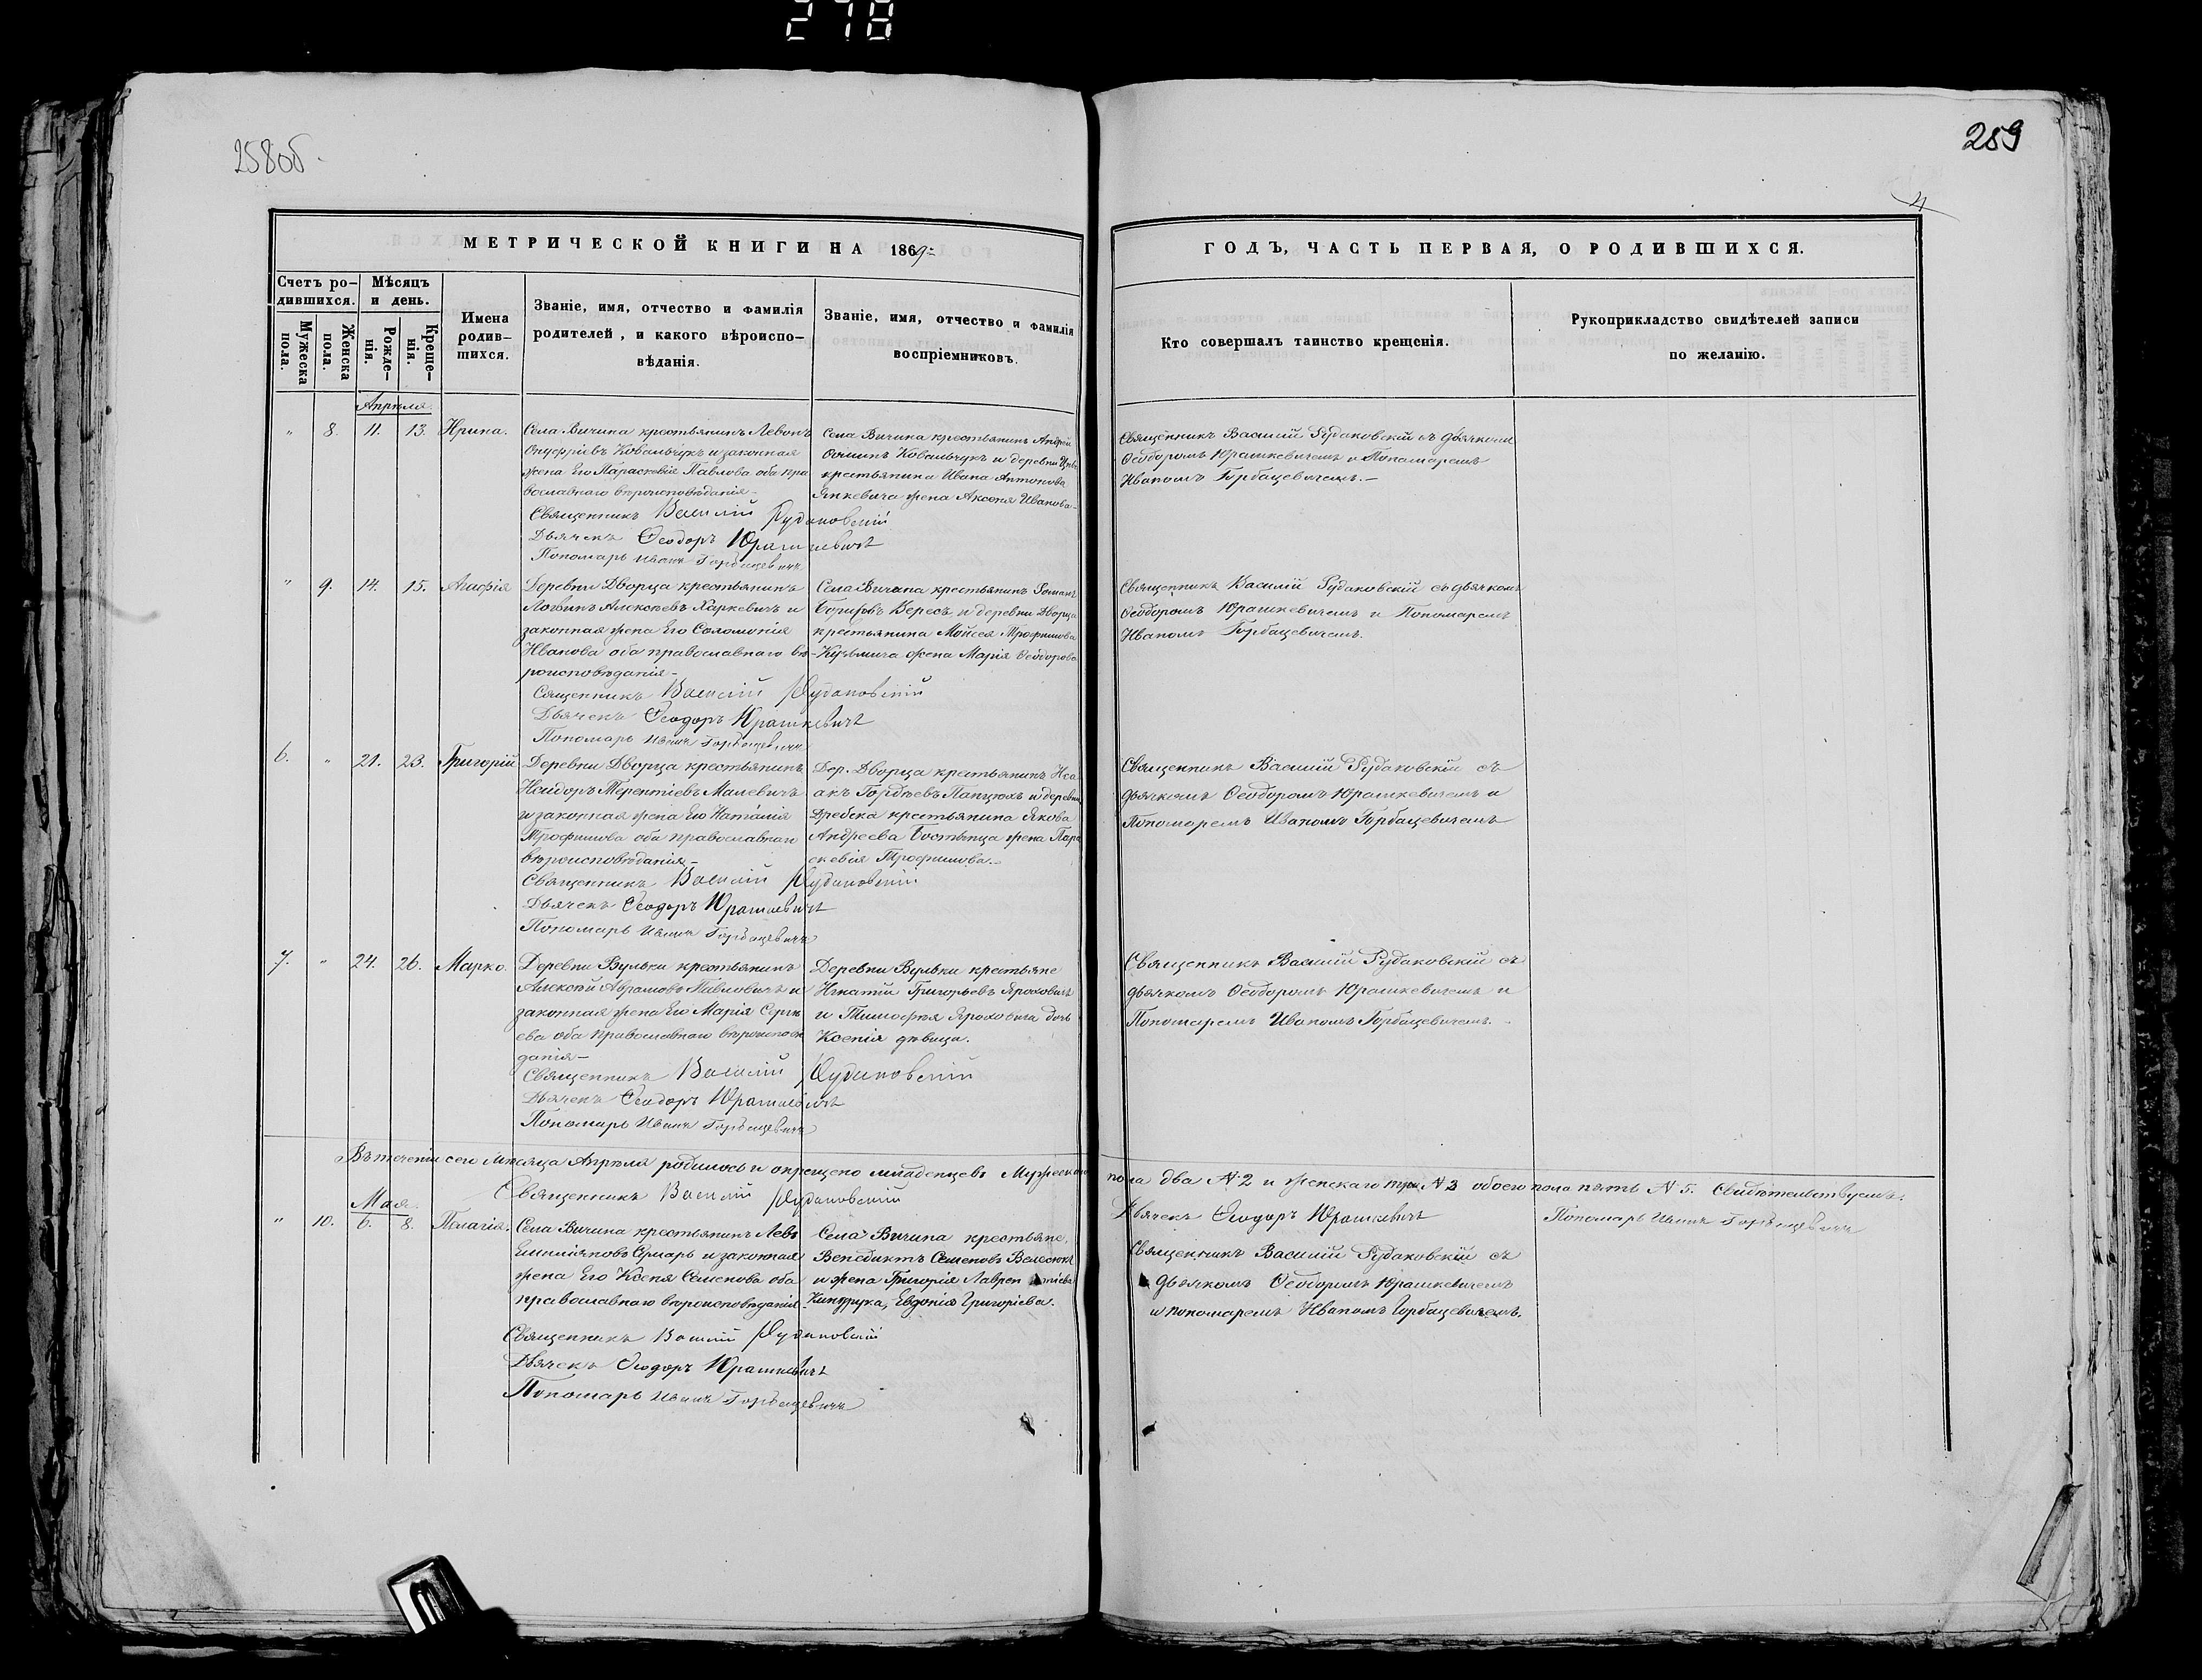 278
258об.
289
4
МЕТРИЧЕСКОЙ КНИГИ НА 1869
ГОДЪ, ЧАСТЬ ПЕРВАЯ, О РОДИВШИХСЯ.
Счетъ ро-
дившихся.
Мужеска
пола.
Женска
пола.
Мѣсяцъ
и день.
Рожде-
нія.
Креще-
нія.
Имена
родив-
шихся.
Званіе, имя, отчество и фамилія
родителей, и какого вѣроиспо-
вѣданія.
Званіе, имя, отчество и фамилія
воспріемниковъ.
Кто совершалъ таинство крещенія.
Рукоприкладство свидѣтелей записи
по желанію.
Апрѣля.
" 8. 11. 13. Ирина.
Села Вичина крестьянинъ Левонъ
Онуфріевъ Ковальчукъ и законная
жена Его Параскевія Павлова оба пра
вославнаго вѣроисповѣданія
Села Вичина крестьянинъ Андрей
Ковальчукъ и деревни
крестьянина Ивана Антонова
Янкевича жена Аксенія Иванова
Священникъ Василій Рудаковскій съ дьячкомъ
Ѳеодоромъ Юрашкевичемъ и Пономаремъ
Иваномъ Горбацевичемъ.
Священникъ Василій Рудаковскій
Дьячекъ Ѳеодоръ Юрашкевичъ
Пономарь Иванъ Горбацевичъ
" 9. 14. 15. Агафія
Деревни Дворца крестьянинъ
Логвинъ Алексѣевъ Харкевичъ и
законная жена Его Соломонія
Иванова оба православнаго вѣ-
роисповѣданія
Села Вичина крестьянинъ Романъ
Борисовъ Вересъ и деревни Дворца
крестьянина Мойсея Трофимова
Кузьмича жена Марія Ѳеодорова
Священникъ Василій Рудаковскій съ дьячкомъ
Ѳеодоромъ Юрашкевичемъ и Пономаремъ
Иваномъ Горбацевичемъ.
Священникъ Василій Рудаковскій
Дьячекъ Ѳеодоръ Юрашкевичъ
Пономарь Иванъ Горбацевичъ
6. " 21. 23. Григорій
Деревни Дворца крестьянинъ
Исидоръ Терентіевъ Малевичъ
и законная жена Его Наталія
Трофимова оба православнаго
вѣроисповѣданія
Дер. Дворца крестьянинъ Иса
акъ Гордѣевъ Панцюхъ и деревни
Дребска крестьянина Якова
Андреева жена Пара
скевія Трофимова.
Священникъ Василій Рудаковскій съ
дьячкомъ Ѳеодоромъ Юрашкевичемъ и
Пономаремъ Иваномъ Горбацевичемъ
Священникъ Василій Рудаковскій
Дьячекъ Ѳеодоръ Юрашкевичъ
Пономарь Иванъ Горбацевичъ
7. " 24. 26. Марко.
Деревни Вульки крестьянинъ
Алексѣй Абрамовъ Павловичъ и
законная жена Его Марія Сергѣ
ева оба православнаго вѣроисповѣ
данія
Деревни Вульки крестьяне
Игнатій Григорьевъ Яроховичъ
и Тимофея Яроховича дочь
Ксенія дѣвица.
Священникъ Василій Рудаковскій съ
дьячкомъ Ѳеодоромъ Юрашкевичемъ и
Пономаремъ Иваномъ Горбацевичемъ.
Священникъ Василій Рудаковскій
Дьячекъ Ѳеодоръ Юрашкевичъ
Пономарь Иванъ Горбацевичъ
Въ теченіи сего мѣсяца Апрѣля родилось и окрещено младенцевъ Мужескаго пола два № 2 и женскаго три № 3 обоего пола пять № 5. Свидѣтельствуемъ.
Священникъ Василій Рудаковскій
Дьячекъ Ѳеодоръ Юрашкевичъ
Пономарь Иванъ Горбацевичъ
Мая.
" 10. 6. 8. Пелагія.
Села Вичина крестьянинъ Левъ
Емиліяновъ и законная
жена Его Ксенія Семенова оба
православнаго вѣроисповѣданія
Села Вичина крестьяне,
Венедиктъ Семеновъ Велесюкъ
и жена Григорія Лаврентіева
Евдокія Григоріева.
Священникъ Василій Рудаковскій съ
дьячкомъ Ѳеодоромъ Юрашкевичемъ
и пономаремъ Иваномъ Горбацевичемъ.
Священникъ Василій Рудаковскій
Дьячекъ Ѳеодоръ Юрашкевичъ
Пономарь Иванъ Горбацевичъ